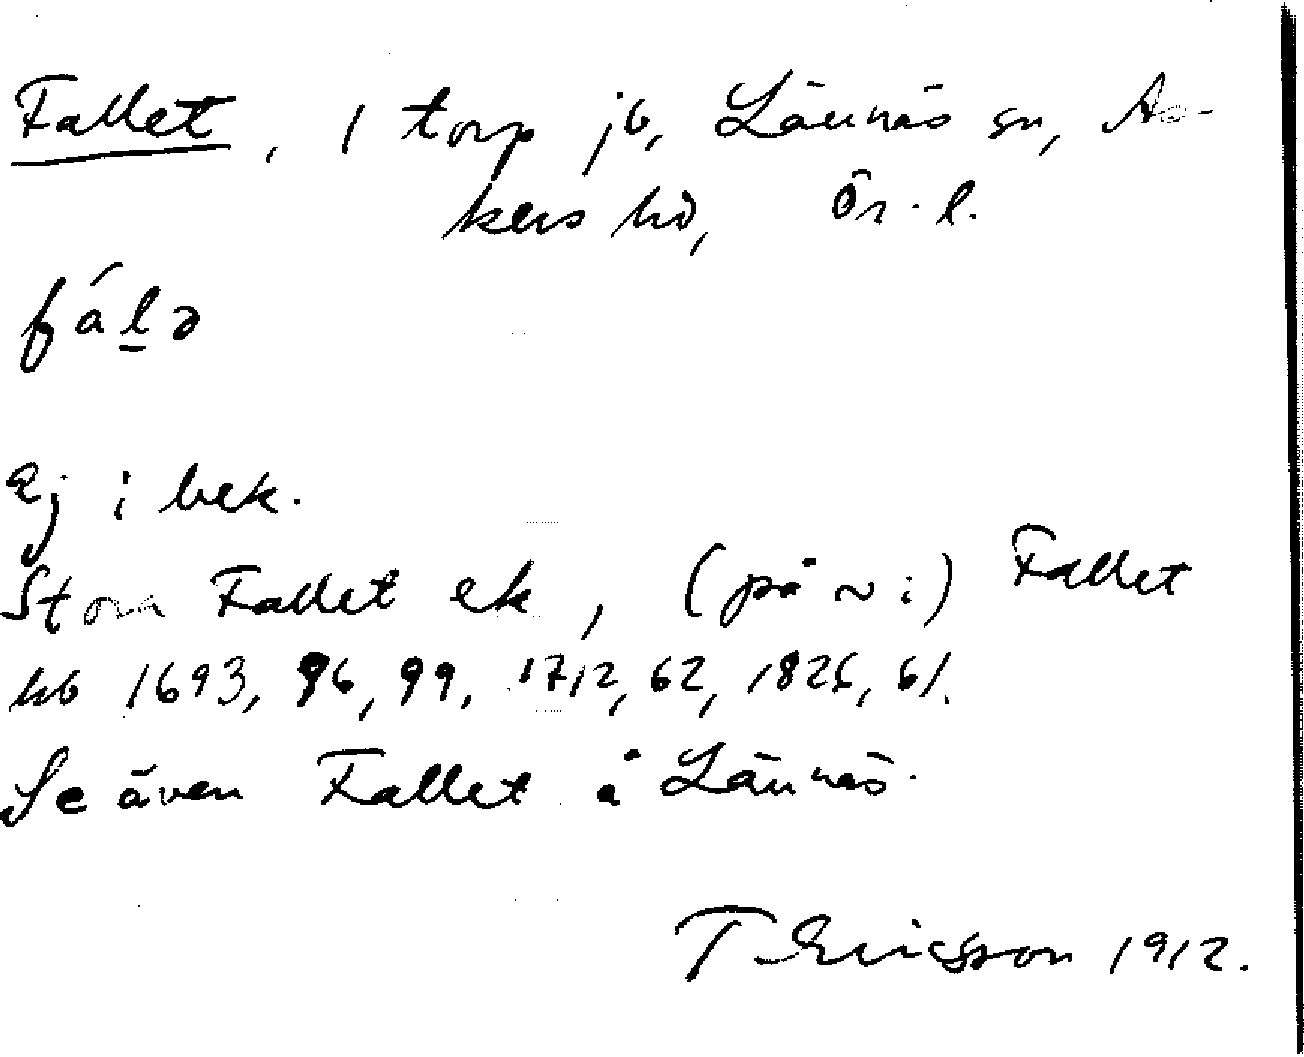 Fallet, 1 torp jb, Lännäs sn, As-
kers hd, Ör. l.
fálə
Ej i bek.
Stora Fallet ek, (på ~ i) Fallet
hb 1693, 96, 99, 1712, 62, 1826, 61.
Se även Fallet å Lännäs.
T Ericsson 1912.